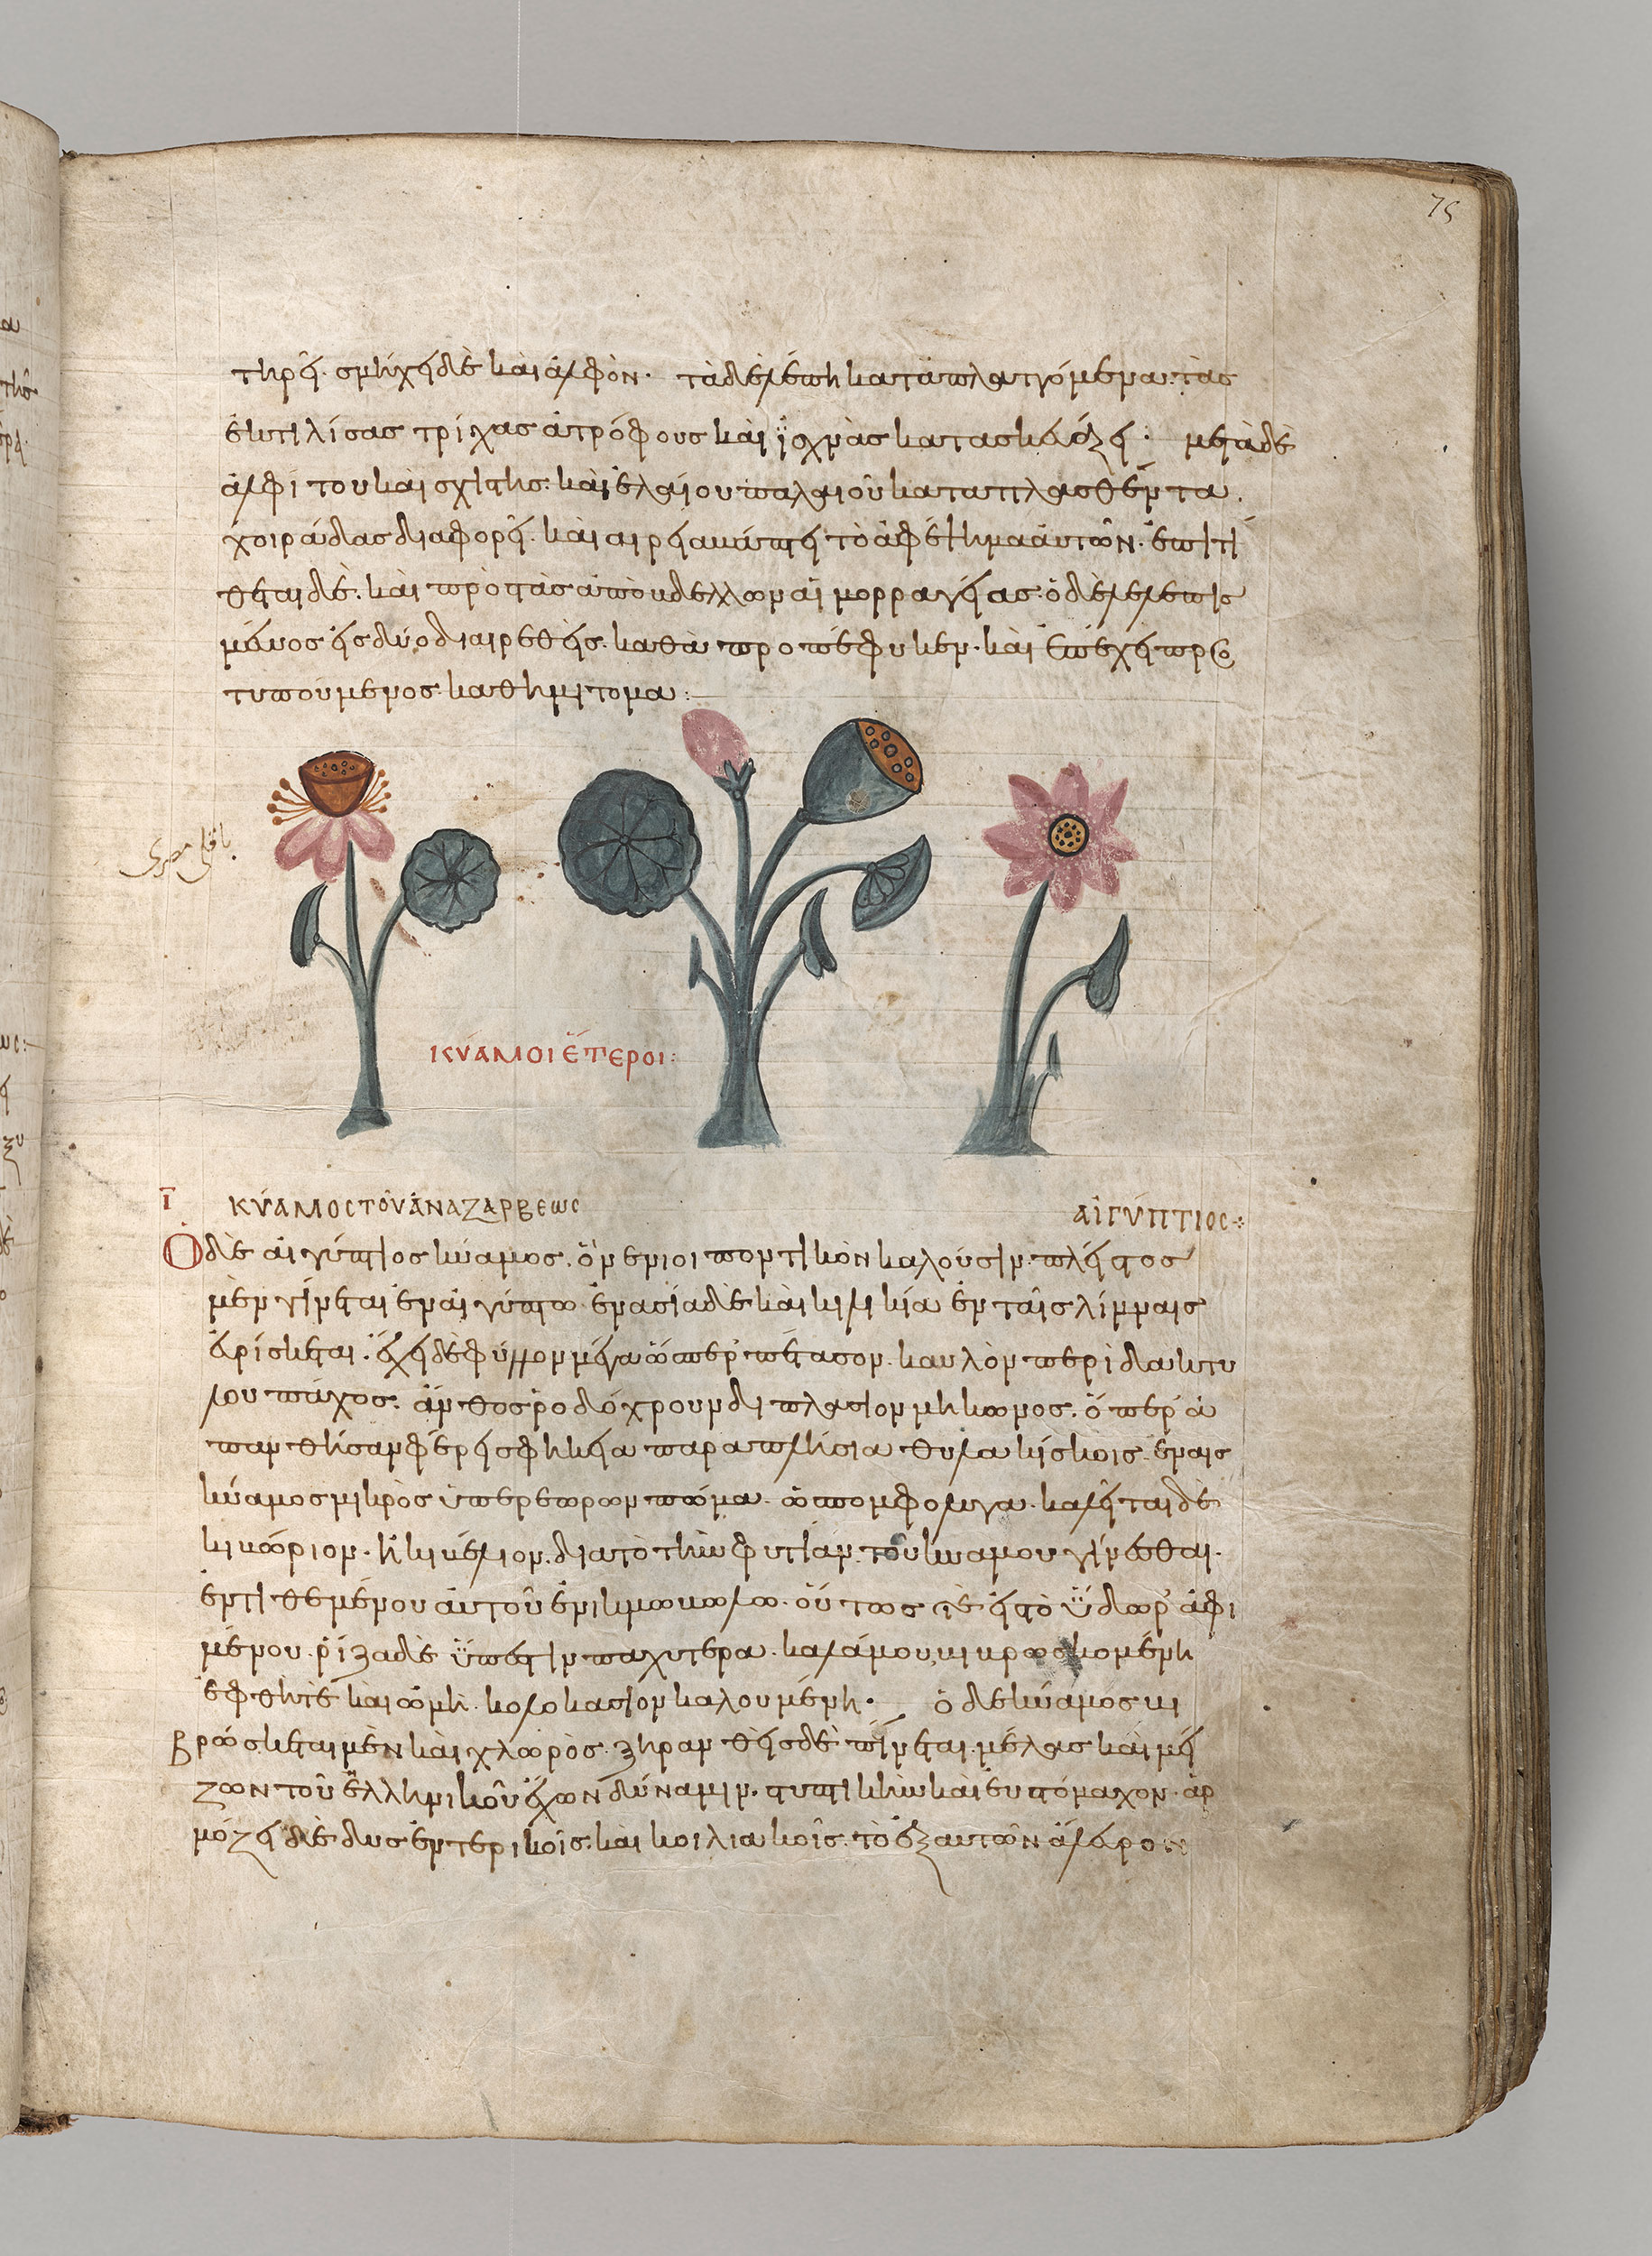 75
τηρεῖ. σμήχει δὲ καὶ ἀλφὸν. τὰ δὲ λέπη καταπλαττόμενα. τὰς
ἐκτιλίσας τρίχας ἀτρόφους καὶ ϊσχνὰς κατασκευάζει. μετὰ δὲ
ἀλφίτου καὶ σχιστῆς. καὶ ἐλαίου παλαιοῦ καταπλασθέντα.
χοιράδας διαφορεῖ. καὶ αιρεακάπτει τὸ ἀφέψημα ἀυτῶν. ἐπιτί
θεται δὲ. καὶ πρὸς τὰς ἀπὸ βδελλων αἱμορραγείας. ὁ δὲ λελεπισ
μένος εἰς δύο διαιρεθεὶς. καθὰ προπέφυκεν. καὶ ἐπέχει προσ
τυπούμενος καθημιτομα:
باقلى مصرى
ΚΎΑΜΟΙ ἝΤΕΡΟΙ:
Γ ΚΎΑΜΟΣ ΤΟῦ ἈΝΑΖΑΡΒΕΩΣ ΑἸΓΎΠΤΙΟΣ:
Ὁ δὲ αιγύπτιος κύαμος. ὃν ενιοι ποντικὸν καλούσιν. πλεῖστος
μὲν γίνεται εν αἰγύπτω. ἐν ασία δὲ καὶ κιλικία ἐν ταῖς λίμναις
ἑυρίσκεται. ἔχει δὲ φύλλον μέγα ὥσπερ πέτασον. καυλὸν περὶ δακτύ
λου πάχος. ἄνθος ῥοδόχρουν διπλασιον μήκωνος. ὅπερ ἀ
πανθῆσαν φέρει σφηκεία παραπλήσια θυλακίσκοις. ἐν αις
κύαμος μικρὸς ὑπερεωρων πῶμα. ὡς πομφόλυγα. καλεῖται δὲ
κικώριον. ἢ κικέλιον. διατὸ τὴν φυτίαν. τοῦ κυαμου γίνεσθαι.
ἐντιθεμένου ἀυτοῦ ἐν ικμω κωλω. οὕτως τὲ εἰς τὸ ὕδωρ ἀφι
μένου. ῥίζα δὲ ὕπεστιν παχυτερα. καλάμου, κικρωσκομένη
ἐφθὴ τὲ καὶ ὠμὴ. κολοκασιον καλουμένη. ὁ δε κύαμος κι
βρώσκεται μὲν καὶ χλωρὸς. ξηρανθεὶς δὲ πίνεται. μέλας καὶ μεί
ζων τοῦ ἑλληνικοῦ ἔχων δύναμιν. στυπτικὴν καὶ ἐυστόμαχον. ἁρ
μόζει δὲ δυσεντερικοῖς. καὶ κοιλιακοῖς. τὸ ἐξ αυτῶν ἄλευρον